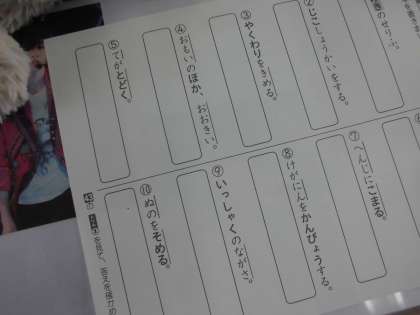 のせりふ
②じこしょうかいをする。
③やくわりをきめる。
④おもいのほか、おおきい。
⑤てがとどく。
⑦へんじにこまる。
⑧けがにんをかんびょうする。
⑨いっしゃくのながさ。
⑩ぬのをそめる。